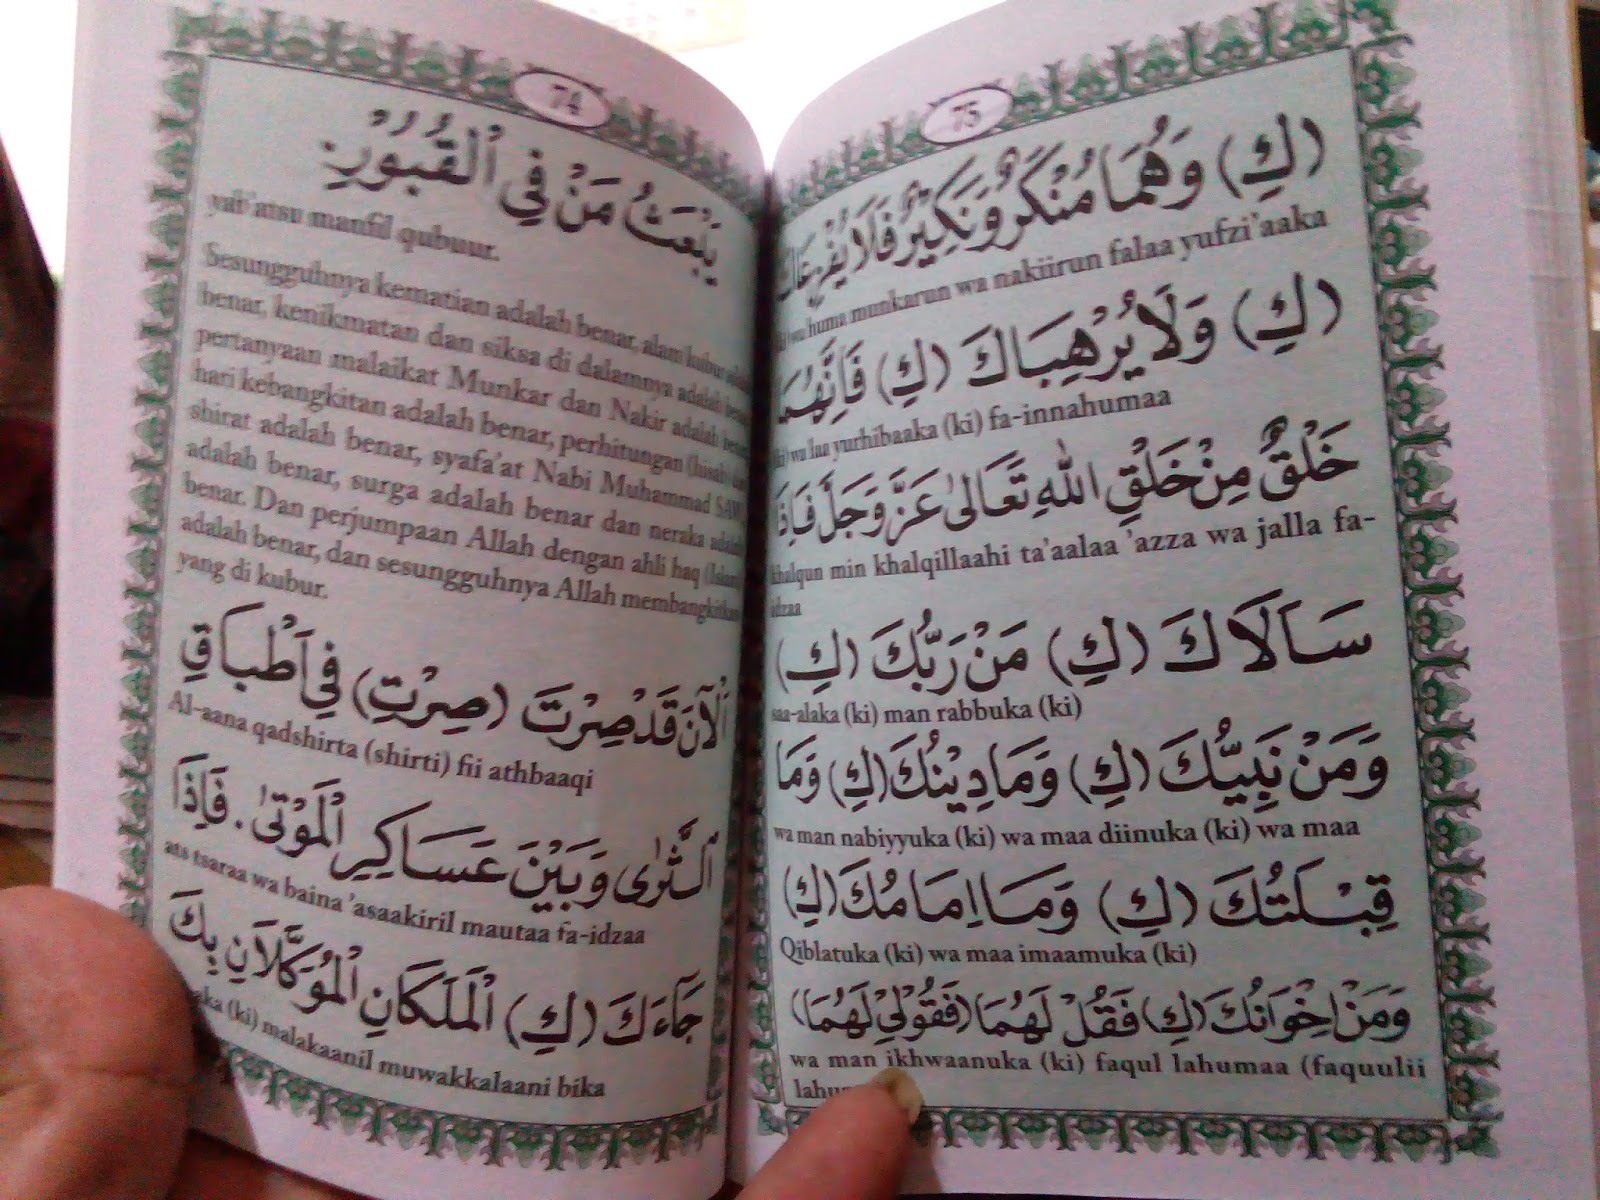 74
يَبْعَثُ مَنْ فِي الْقُبُوْرِ.
yab'atsu manfil qubuur.
Sesungguhnya kematian adalah benar, alam kubur
benar, kenikmatan dan siksa di dalamnya adalah
pertanyaan malaikat Munkar dan Nakir adalah
hari kebangkitan adalah benar, perhitungan (hisab)
shirat adalah benar, syafa'at Nabi Muhammad SAW
adalah benar, surga adalah benar dan neraka
benar. Dan perjumpaan Allah dengan ahli haq
adalah benar, dan sesungguhnya Allah membangkitkan
yang di kubur.
اَلْآنَ قَدْصِرْتَ (صِرْتِ) فِي اَطْبَاقِ
Al-aana qadshirta (shirti) fii athbaaqi
الثَّرٰى وَبَيْنَ عَسَاكِيرِ الْمَوْتٰى. فَاِذَا
ats tsaraa wa baina 'asaakiril mautaa fa-idzaa
جَآءَكَ (كِ) الْمَلَكَانِ الْمُوَكَّلَانِ بِكَ
(ki) malakaanil muwakkalaani bika
75
(كِ) وَهُمَا مُنْكَرٌ وَنَكِيْرٌ فَلَا يُفْزِعَاكَ
wa huma munkarun wa nakiirun falaa yufzi'aaka
(كِ) وَلَا يُرْهِبَاكَ (كِ) فَاِنَّهُمَا
wa laa yurhibaaka (ki) fa-innahumaa
خَلْقٌ مِنْ خَلْقِ اللهِ تَعَالٰى عَزَّ وَجَلَّ فَاِذَا
khalqun min khalqillaahi ta'aalaa 'azza wa jalla fa-
idzaa
سَاَلَاكَ (كِ) مَنْ رَبُّكَ (كِ)
saa-alaka (ki) man rabbuka (ki)
وَمَنْ نَبِيُّكَ (كِ) وَمَا دِيْنُكَ (كِ) وَمَا
wa man nabiyyuka (ki) wa maa diinuka (ki) wa maa
قِبْلَتُكَ (كِ) وَمَا اِمَامُكَ (كِ)
Qiblatuka (ki) wa maa imaamuka (ki)
وَمَنْ اِخْوَانُكَ (كِ) فَقُلْ لَهُمَا (فَقُوْلِيْ لَهُمَا)
wa man ikhwaanuka (ki) faqul lahumaa (faquulii